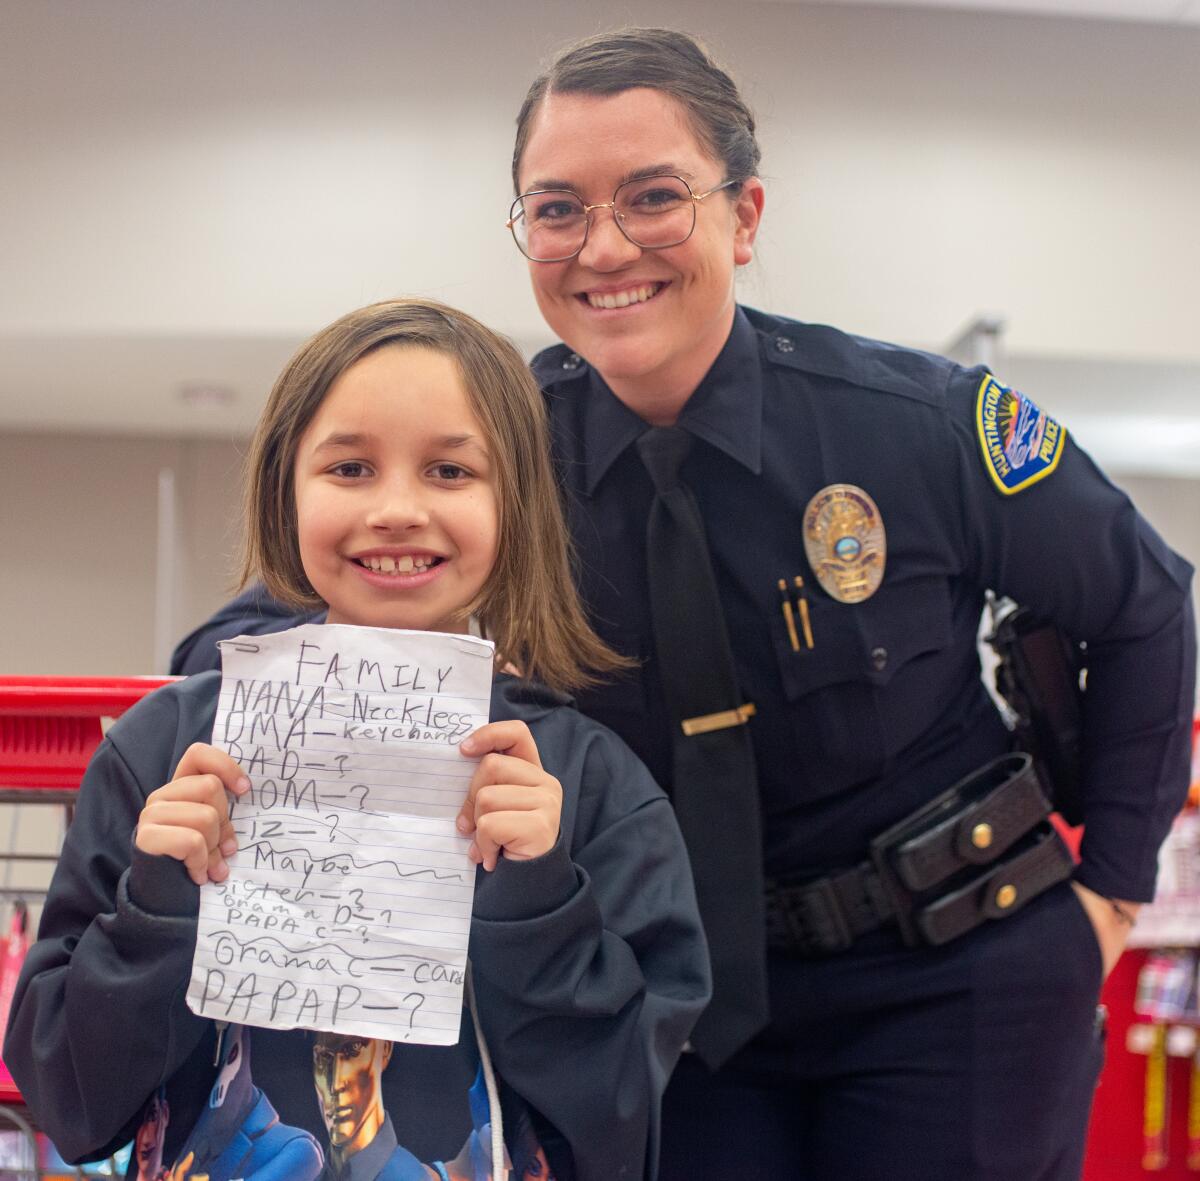 FAMILY
NANA-Neckless
OMA-keychane
DAD-?
MOM-?
Liz-?
Maybe
Sister-?
Grama D-?
PAPA C-?
Grama C-card
PAPA P-?
HUNTINGTON
POLICE